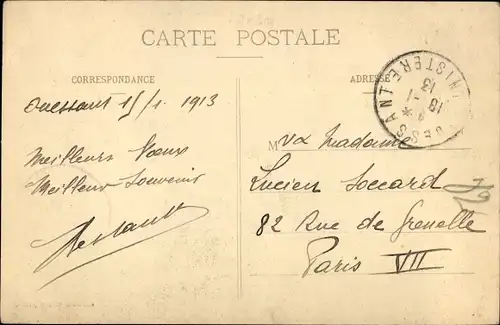 CARTE POSTALE
CORRESPONDANCE
ADRESSE
Ouessant 15/1 1913
Meilleurs Voeux
Meilleur Souvenir
M
Madame
Lucien Soccard
82 Rue de Grenelle
Paris VII
OUESSANT
FINISTERE
18-1
13